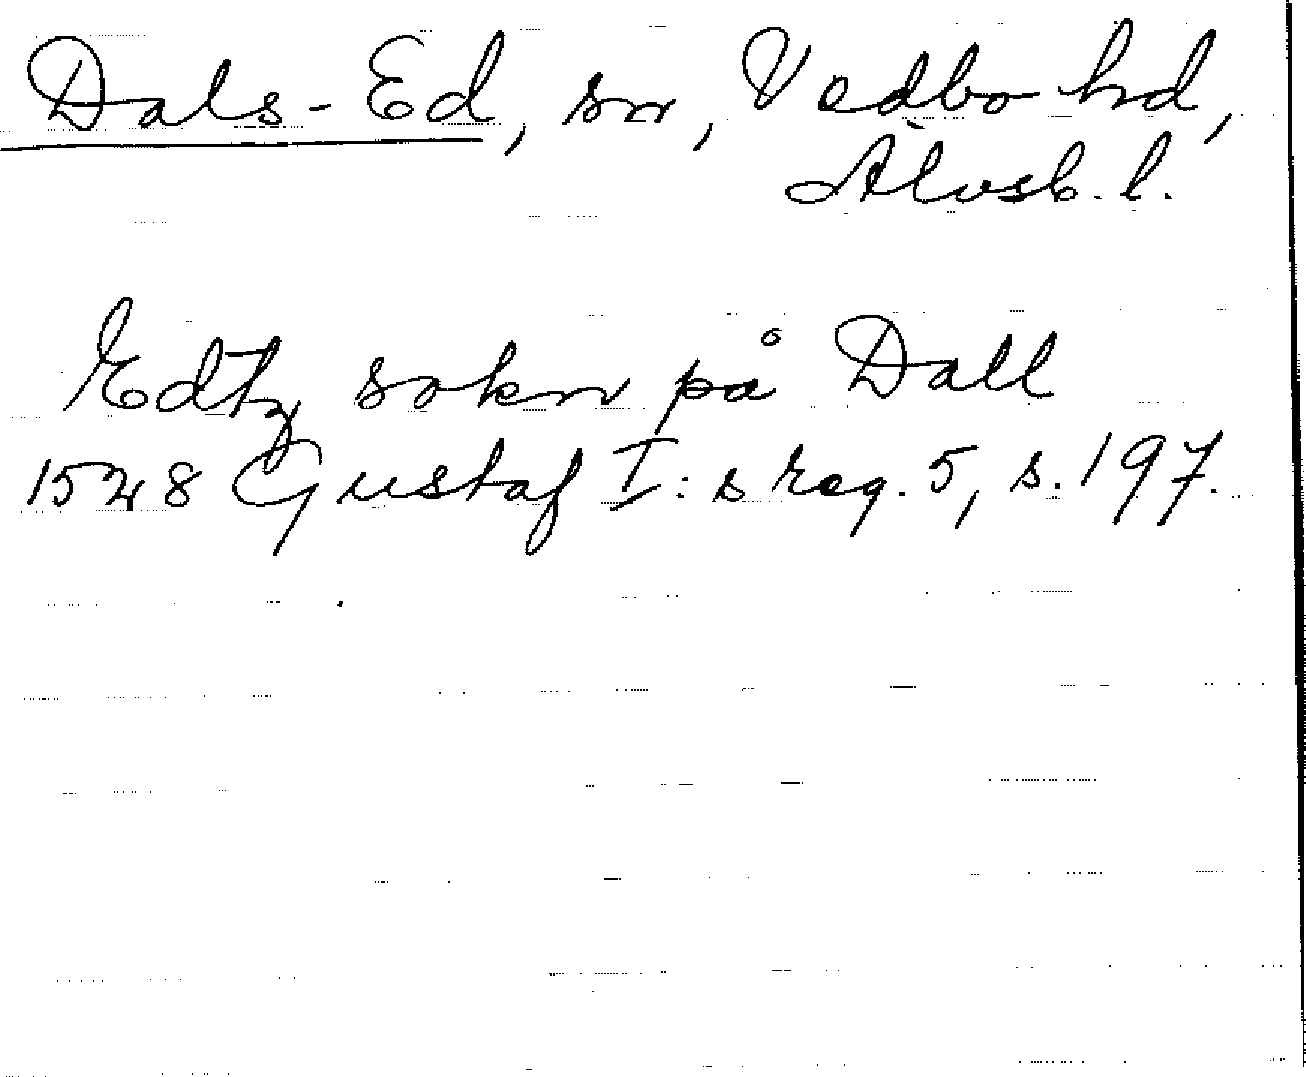 Dals-Ed, sn, Vedbo hd,
Älvsb. l.
Edtz sokn på Dall
1528 Gustaf I:s reg. 5, s. 197.